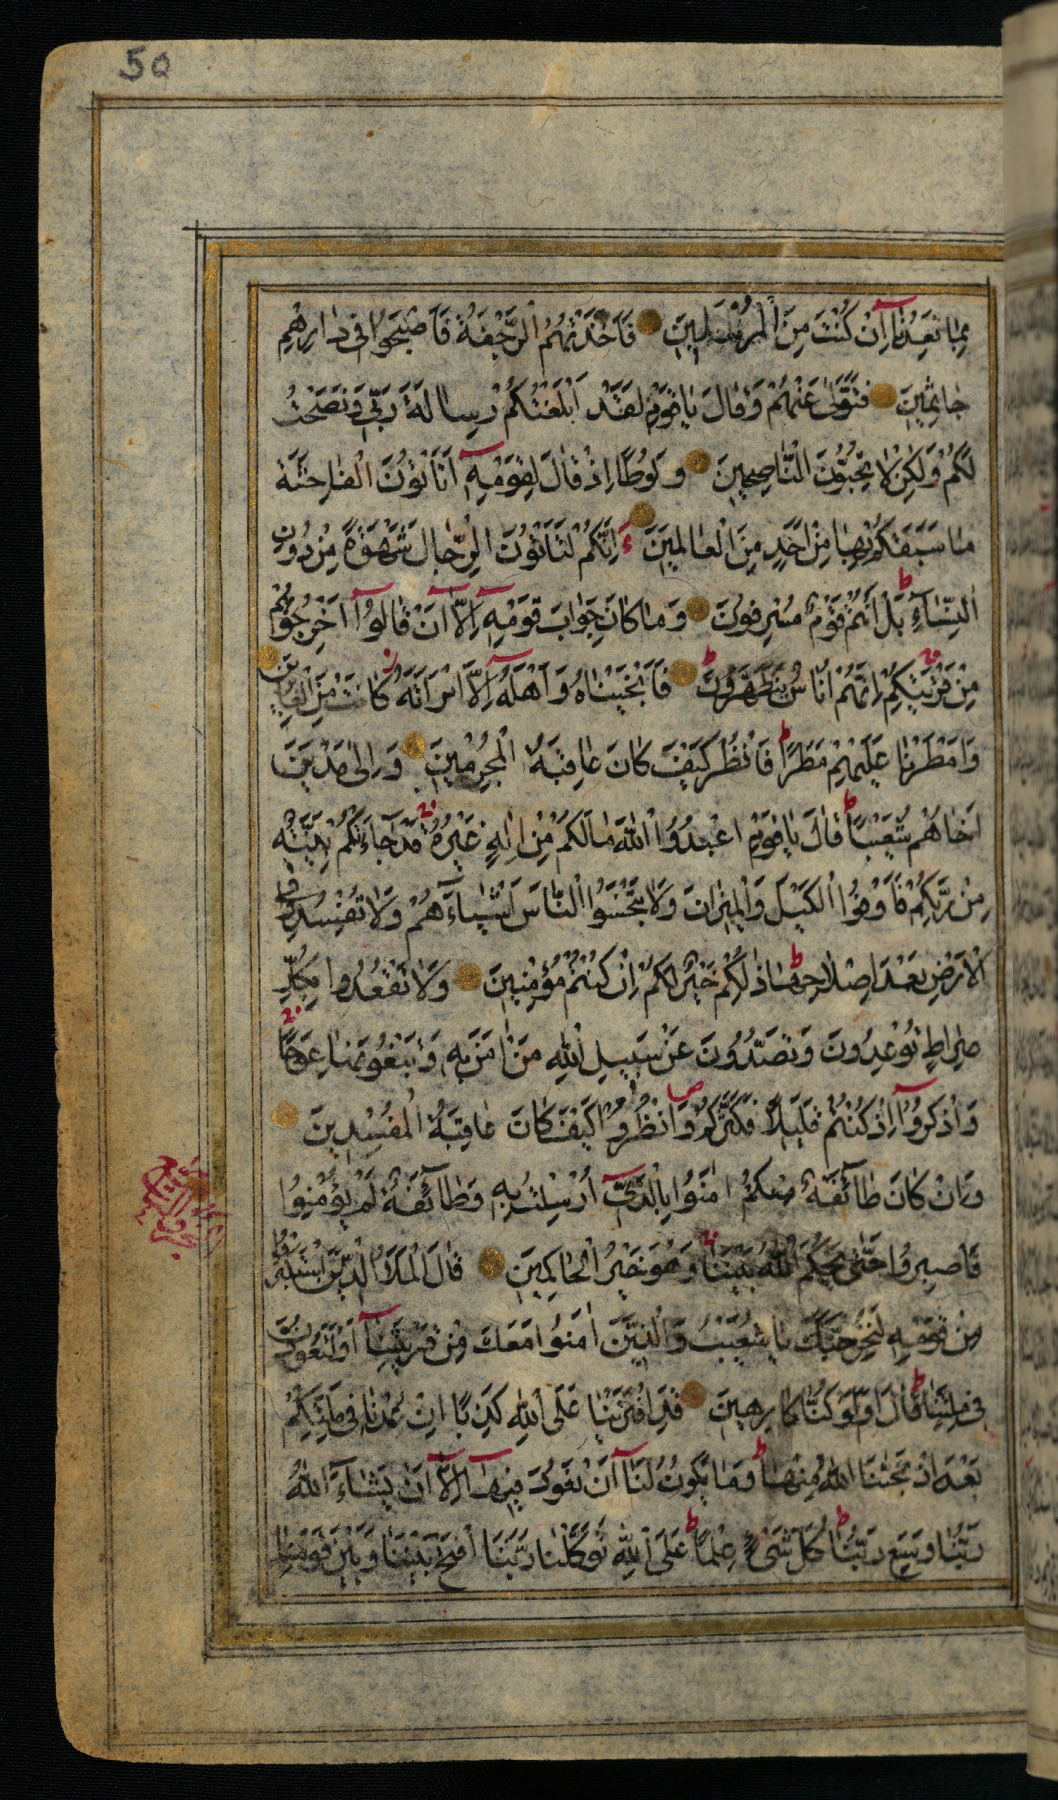 50
بِمَا تَعِدُنَآ اِنْ كُنْتَ مِنَ الْمُرْسَلِينَ فَاَخَذَتْهُمُ الرَّجْفَةُ فَاَصْبَحُوا فِى دَارِهِمْ
جَاثِمِينَ فَتَوَلّٰى عَنْهُمْ وَقَالَ يَا قَوْمِ لَقَدْ اَبْلَغْتُكُمْ رِسَالَةَ رَبِّى وَنَصَحْتُ
لَكُمْ وَلٰكِنْ لَا تُحِبُّونَ النَّاصِحِينَ وَلُوطًا اِذْ قَالَ لِقَوْمِهٖٓ اَتَاْتُونَ الْفَاحِشَةَ
مَا سَبَقَكُمْ بِهَا مِنْ اَحَدٍ مِنَ الْعَالَمِينَ ءَاِنَّكُمْ لَتَاْتُونَ الرِّجَالَ شَهْوَةً مِنْ دُونِ
النِّسَآءِ ط بَلْ اَنْتُمْ قَوْمٌ مُسْرِفُونَ وَمَا كَانَ جَوَابَ قَوْمِهٖٓ اِلَّآ اَنْ قَالُوٓا اَخْرِجُوهُمْ
مِنْ قَرْيَتِكُمْ اِنَّهُمْ اُنَاسٌ يَتَطَهَّرُونَ فَاَنْجَيْنَاهُ وَاَهْلَهُٓ اِلَّا امْرَاَتَهُ كَانَتْ مِنَ الْغَابِرِينَ
وَاَمْطَرْنَا عَلَيْهِمْ مَطَرًا ط فَانْظُرْ كَيْفَ كَانَ عَاقِبَةُ الْمُجْرِمِينَ وَاِلٰى مَدْيَنَ
اَخَاهُمْ شُعَيْبًا ط قَالَ يَا قَوْمِ اعْبُدُوا اللّٰهَ مَا لَكُمْ مِنْ اِلٰهٍ غَيْرُهُ قَدْ جَآءَتْكُمْ بَيِّنَةٌ
مِنْ رَبِّكُمْ فَاَوْفُوا الْكَيْلَ وَالْمِيزَانَ وَلَا تَبْخَسُوا النَّاسَ اَشْيَآءَهُمْ وَلَا تُفْسِدُوا فِى
الْاَرْضِ بَعْدَ اِصْلَاحِهَا ط ذٰلِكُمْ خَيْرٌ لَكُمْ اِنْ كُنْتُمْ مُؤْمِنِينَ وَلَا تَقْعُدُوا بِكُلِّ
صِرَاطٍ تُوعِدُونَ وَتَصُدُّونَ عَنْ سَبِيلِ اللّٰهِ مَنْ اٰمَنَ بِهِ وَتَبْغُونَهَا عِوَجًا
وَاذْكُرُوٓا اِذْ كُنْتُمْ قَلِيلًا فَكَثَّرَكُمْ ص وَانْظُرُوا كَيْفَ كَانَ عَاقِبَةُ الْمُفْسِدِينَ
وَاِنْ كَانَ طَآئِفَةٌ مِنْكُمْ اٰمَنُوا بِالَّذِىٓ اُرْسِلْتُ بِهِ وَطَآئِفَةٌ لَمْ يُؤْمِنُوا
فَاصْبِرُوا حَتّٰى يَحْكُمَ اللّٰهُ بَيْنَنَا وَهُوَ خَيْرُ الْحَاكِمِينَ قَالَ الْمَلَاُ الَّذِينَ اسْتَكْبَرُوا
مِنْ قَوْمِهِ لَنُخْرِجَنَّكَ يَا شُعَيْبُ وَالَّذِينَ اٰمَنُوا مَعَكَ مِنْ قَرْيَتِنَآ اَوْ لَتَعُودُنَّ
فِى مِلَّتِنَا ط قَالَ اَوَلَوْ كُنَّا كَارِهِينَ قَدِ افْتَرَيْنَا عَلَى اللّٰهِ كَذِبًا اِنْ عُدْنَا فِى مِلَّتِكُمْ
بَعْدَ اِذْ نَجّٰينَا اللّٰهُ مِنْهَا ط وَمَا يَكُونُ لَنَآ اَنْ نَعُودَ فِيهَآ اِلَّآ اَنْ يَشَآءَ اللّٰهُ
رَبُّنَا وَسِعَ رَبُّنَا كُلَّ شَىْءٍ عِلْمًا ط عَلَى اللّٰهِ تَوَكَّلْنَا رَبَّنَا افْتَحْ بَيْنَنَا وَبَيْنَ قَوْمِنَا